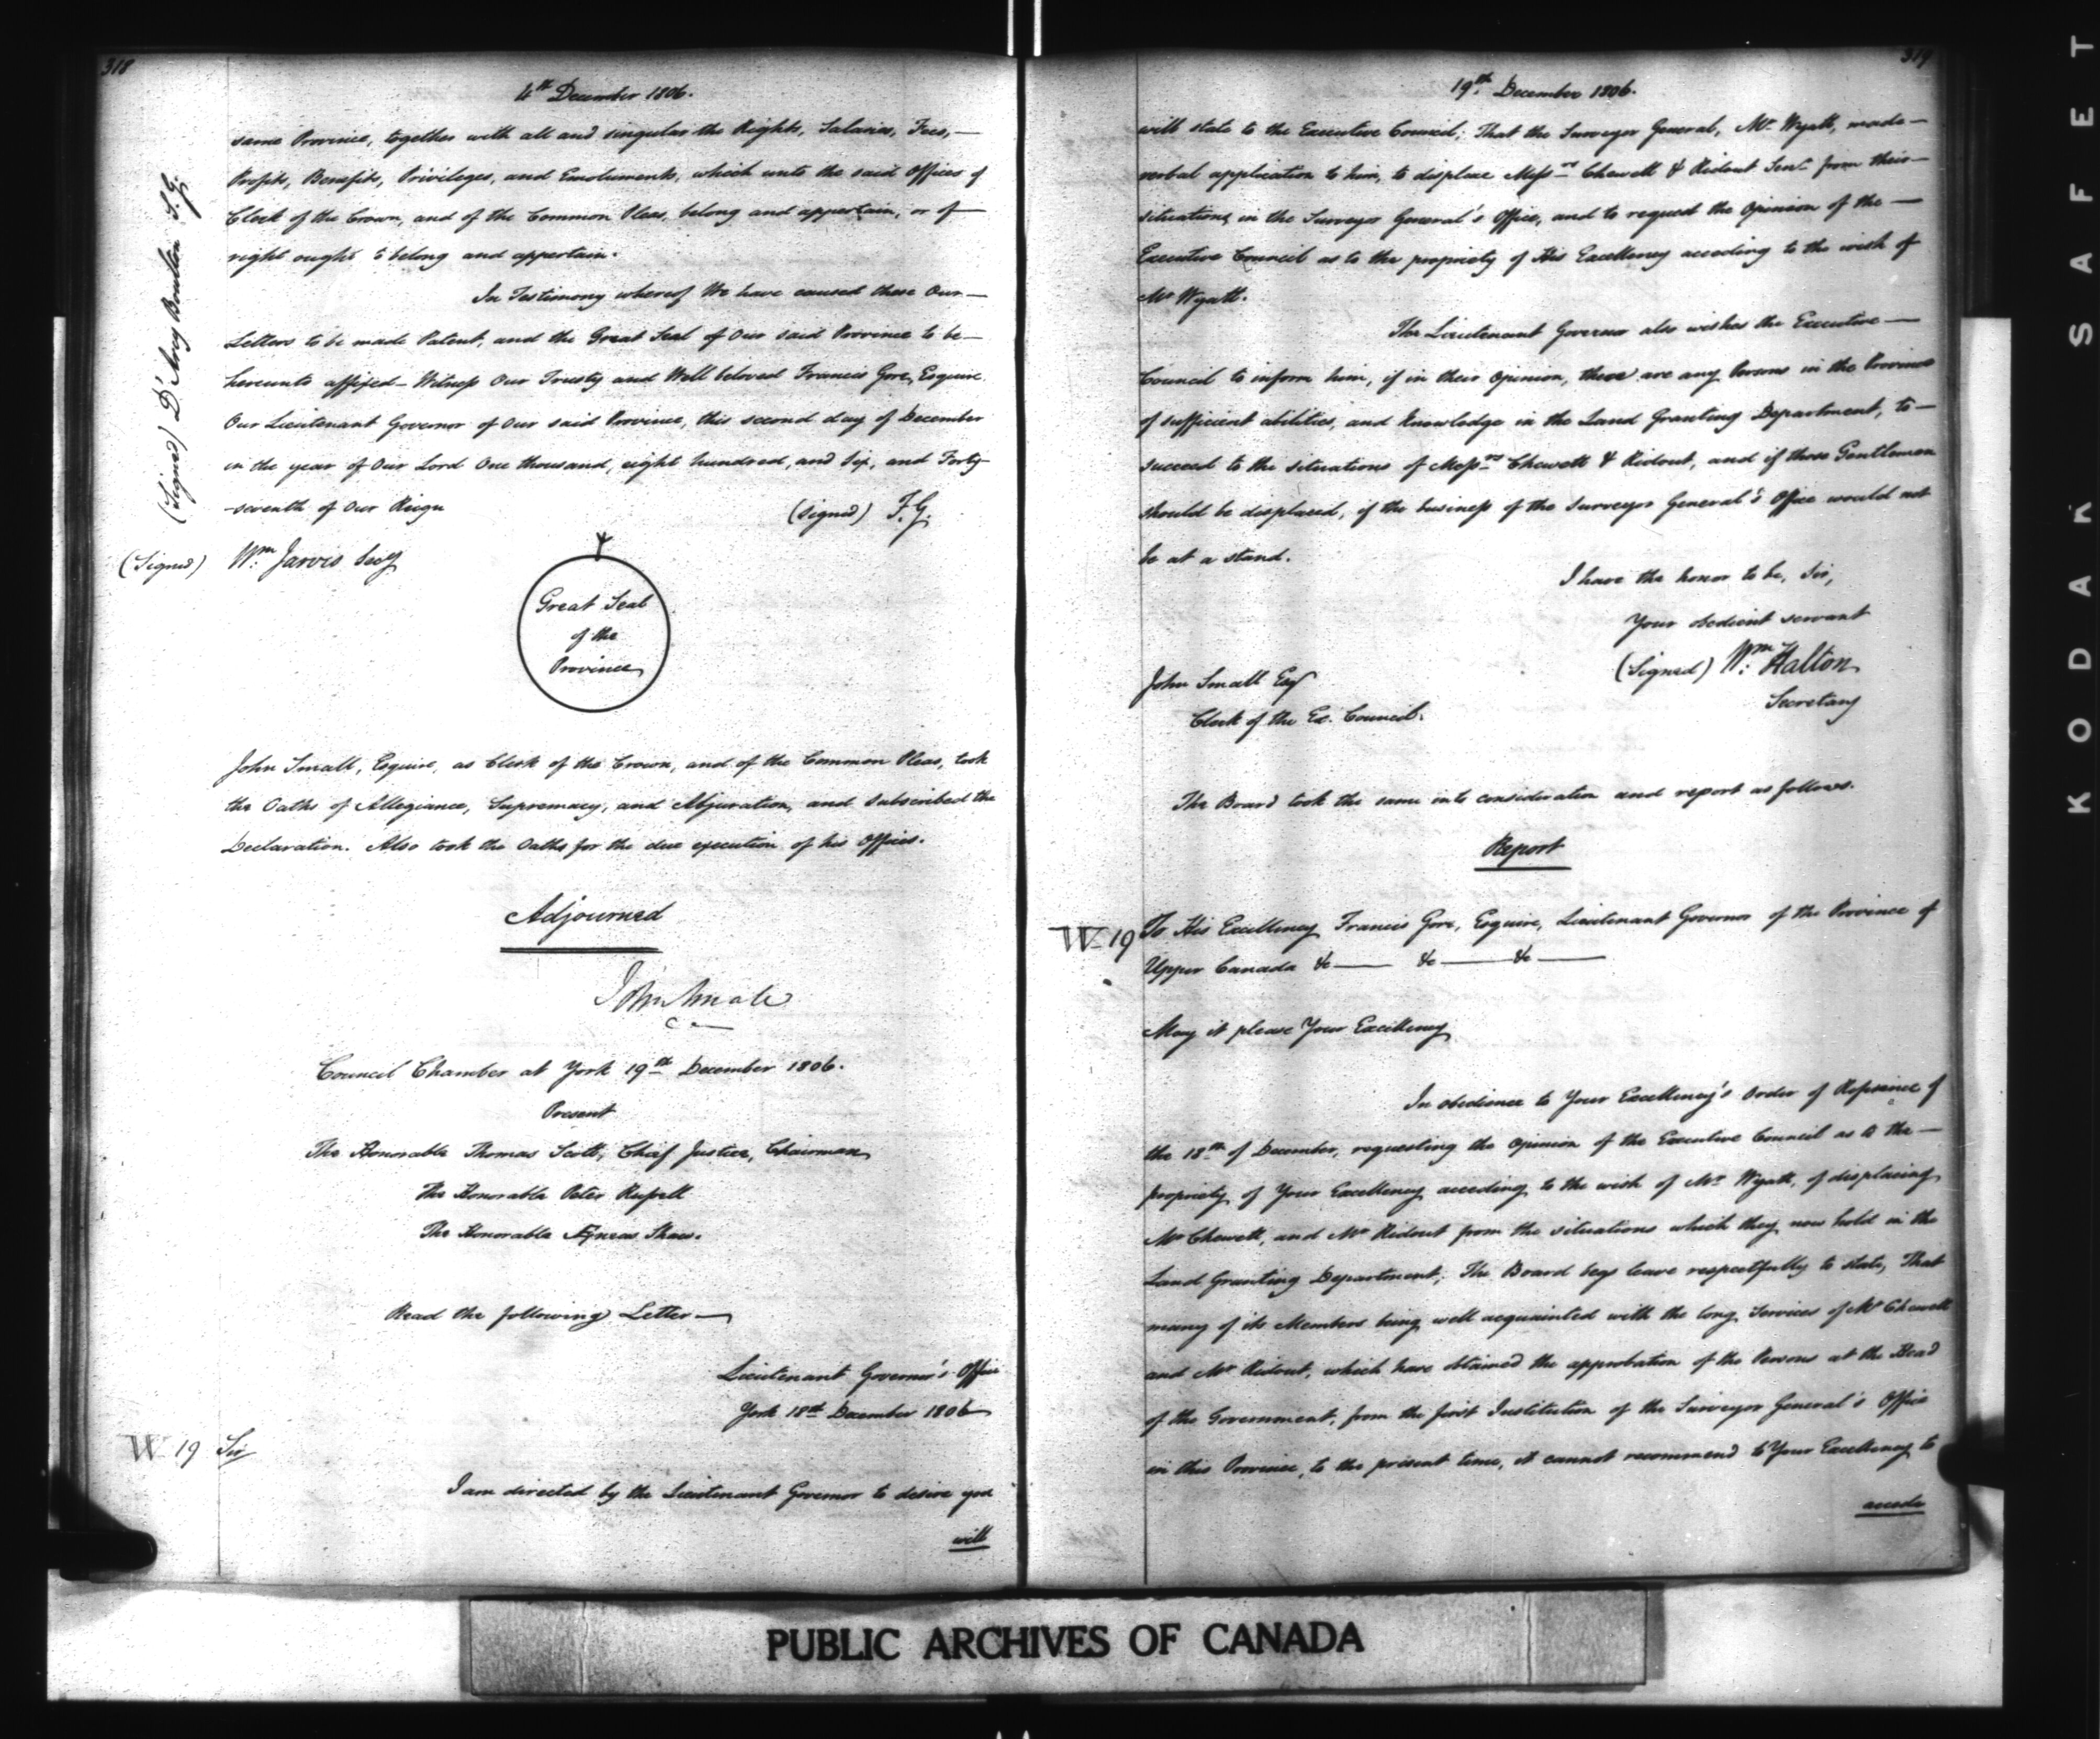 318
4th December 1806.
same Province, together with all and singular the Rights, Salaries, Fees,—
Profits, Benefits, Privileges, and Emoluments, which unto the said Offices of
Clerk of the Crown, and of the Common Pleas, belong and appertain, or of—
right ought to belong and appertain.
In Testimony whereof We have caused these Our—
Letters to be made Patent, and the Great Seal of Our said Province to be—
hereunto affixed— Witness Our Trusty and Well beloved Francis Gore, Esquire
Our Lieutenant Governor of Our said Province, this second day of December
in the year of Our Lord One thousand, eight hundred, and Six, and Forty
-seventh of Our Reign
(signed) F. G.
(Signed) D'Arcy Boulton S. G.
(Signed) Wm. Jarvis Secy
Great Seal
of the
Province
John Small, Esquire, as Clerk of the Crown, and of the Common Pleas, took
the Oaths of Allegiance, Supremacy, and Abjuration, and subscribed the
Declaration. Also took the Oaths for the due execution of his Offices.
Adjourned
John Small
Council Chamber at York 19th December 1806.
Present
The Honorable Thomas Scott, Chief Justice, Chairman
The Honorable Peter Russell
The Honorable Æneas Shaw.
Read the following Letter—
Lieutenant Governor's Office
York 18th December 1806
W 19 Sir
I am directed by the Lieutenant Governor to desire you
will
319
19th December 1806.
will state to the Executive Council; That the Surveyor General, Mr Wyatt, made—
verbal application to him, to displace Messrs Chewett & Ridout Senr from their—
situations in the Surveyor General's Office, and to request the Opinion of the—
Executive Council as to the propriety of His Excellency acceding to the wish of
Mr Wyatt.
The Lieutenant Governor also wishes the Executive—
Council to inform him, if in their Opinion, there are any Persons in the Province
of sufficient abilities, and knowledge in the Land Granting Department, to—
succeed to the situations of Messrs Chewett & Ridout, and if those Gentlemen
should be displaced, if the business of the Surveyor General's Office would not
be at a stand.
I have the honor to be, Sir,
Your obedient servant
(Signed) Wm. Halton
Secretary
John Small Esqr
Clerk of the Ex. Council.
The Board took the same into consideration and report as follows.
Report
W 19 To His Excellency Francis Gore, Esquire, Lieutenant Governor of the Province of
Upper Canada &c— &c— &c—
May it please Your Excellency
In obedience to Your Excellency's Order of Reference of
the 18th of December, requesting the Opinion of the Executive Council as to the—
propriety of Your Excellency acceding to the wish of Mr Wyatt, of displacing
Mr Chewett, and Mr Ridout from the situations which they now hold in the
Land Granting Department; The Board begs leave respectfully to state, That
many of its Members being well acquainted with the long Services of Mr Chewett
and Mr Ridout, which have obtained the approbation of the Persons at the Head
of the Government, from the first Institution of the Surveyor General's Office
in this Province, to the present time, it cannot recommend to Your Excellency to
accede
PUBLIC ARCHIVES OF CANADA
KODAK SAFET